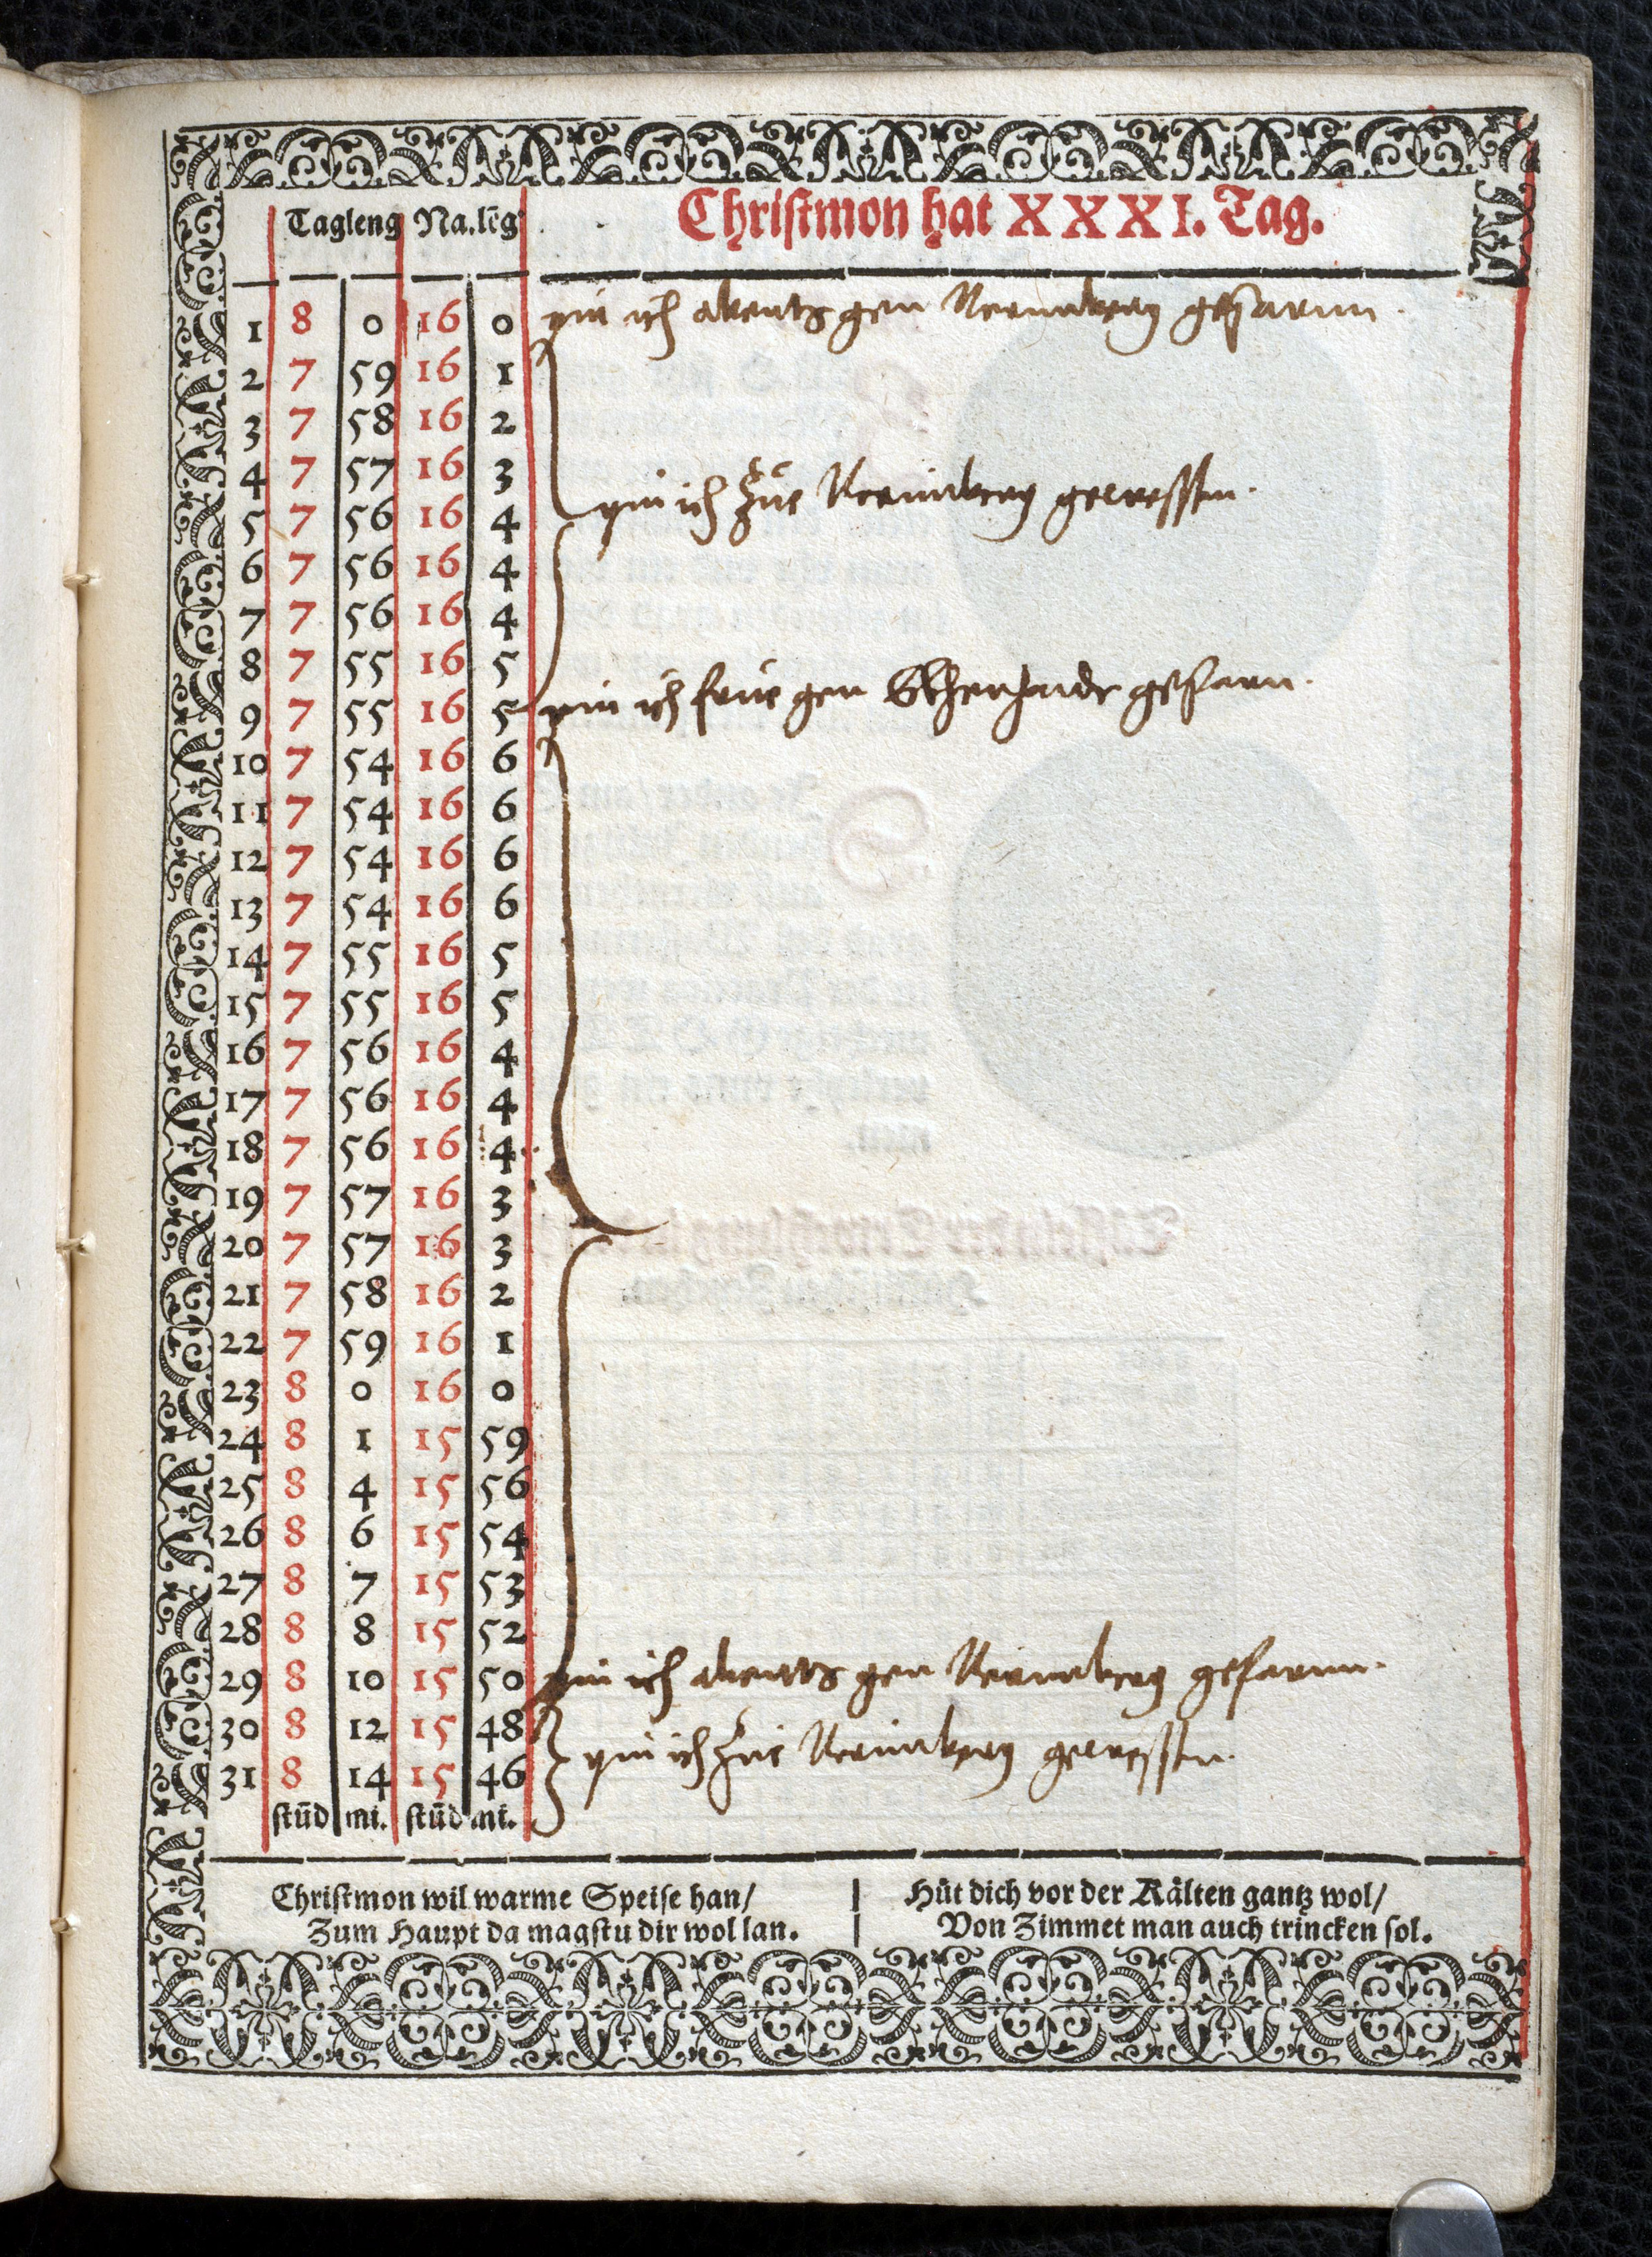 Tagleng Na.lēg Christmon hat XXXI. Tag.
1 8 0 16 0 pin ich abents gen Nermberg gefarnn.
2 7 59 16 1
3 7 58 16 2
4 7 57 16 3
5 7 56 16 4 pin ich Zue Nermberg gewessen.
6 7 56 16 4
7 7 56 16 4
8 7 55 16 5
9 7 55 16 5 pin ich frue gen gefarn.
10 7 54 16 6
11 7 54 16 6
12 7 54 16 6
13 7 54 16 6
14 7 55 16 5
15 7 55 16 5
16 7 56 16 4
17 7 56 16 4
18 7 56 16 4
19 7 57 16 3
20 7 57 16 3
21 7 58 16 2
22 7 59 16 1
23 8 0 16 0
24 8 1 15 59
25 8 4 15 56
26 8 6 15 54
27 8 7 15 53
28 8 8 15 52
29 8 10 15 50 pin ich abents gen Nermberg gefarnn.
30 8 12 15 48 pin ich Zue Nermberg gewessen.
31 8 14 15 46
stūd mi. stūd mi.
Christmon wil warme Speise han/
Zum Haupt da magstu dir wol lan.
Hüt dich vor der Kälten gantz wol/
Von Zimmet man auch trincken sol.